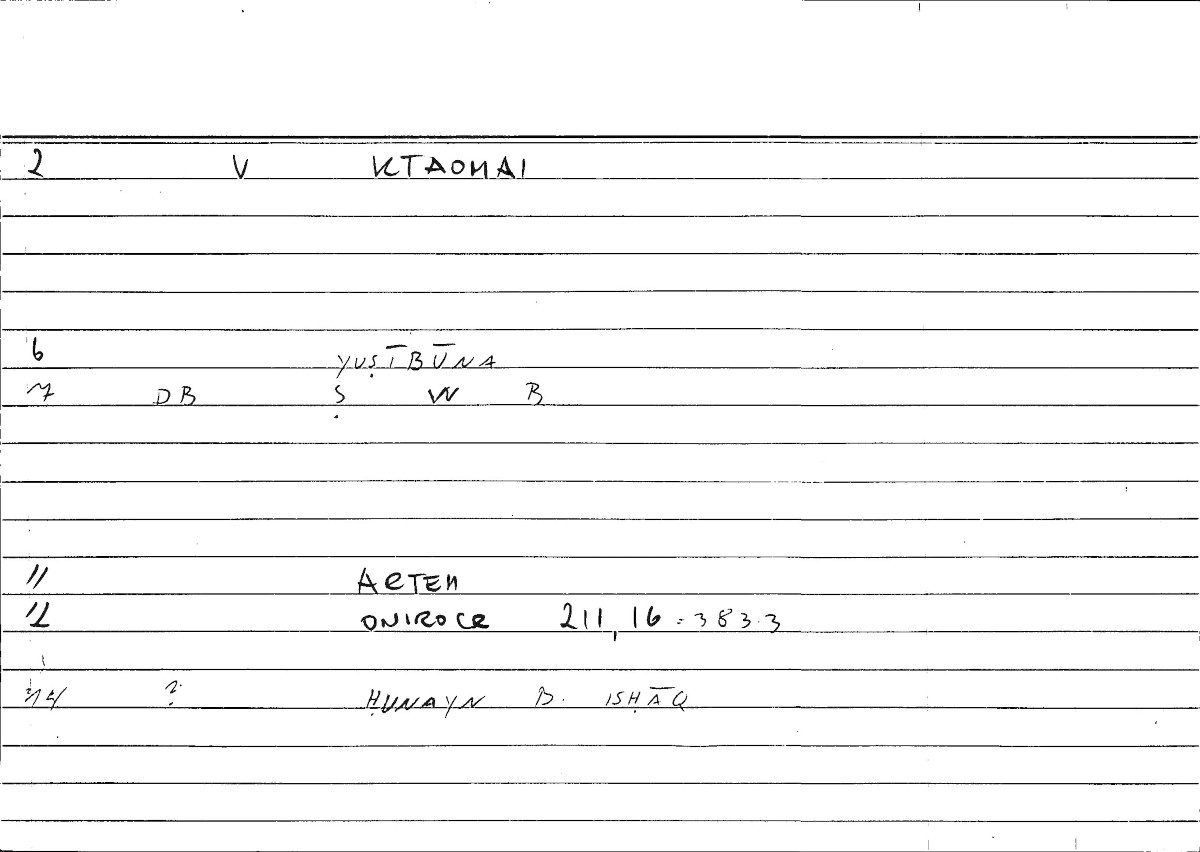 2 V KTAOMAI
6 YUṢĪBŪNA
7 DB Ṣ W B
11 ARTEM
12 ONIROCR 211,16 = 383.3
14 ? ḤUNAYN B. ISḤĀQ